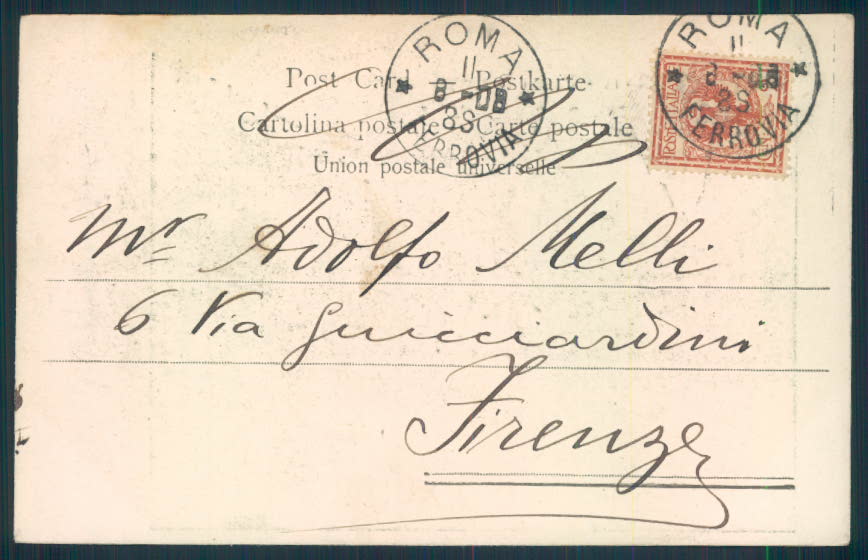 ROMA
11
8 - 08
8S
FERROVIA
ROMA
11
8 - 08
8S
FERROVIA
Post Card — Postkarte
Cartolina postale Carte postale
Union postale universelle
Mr Adolfo Melli
6 Via Guicciardini
Firenze